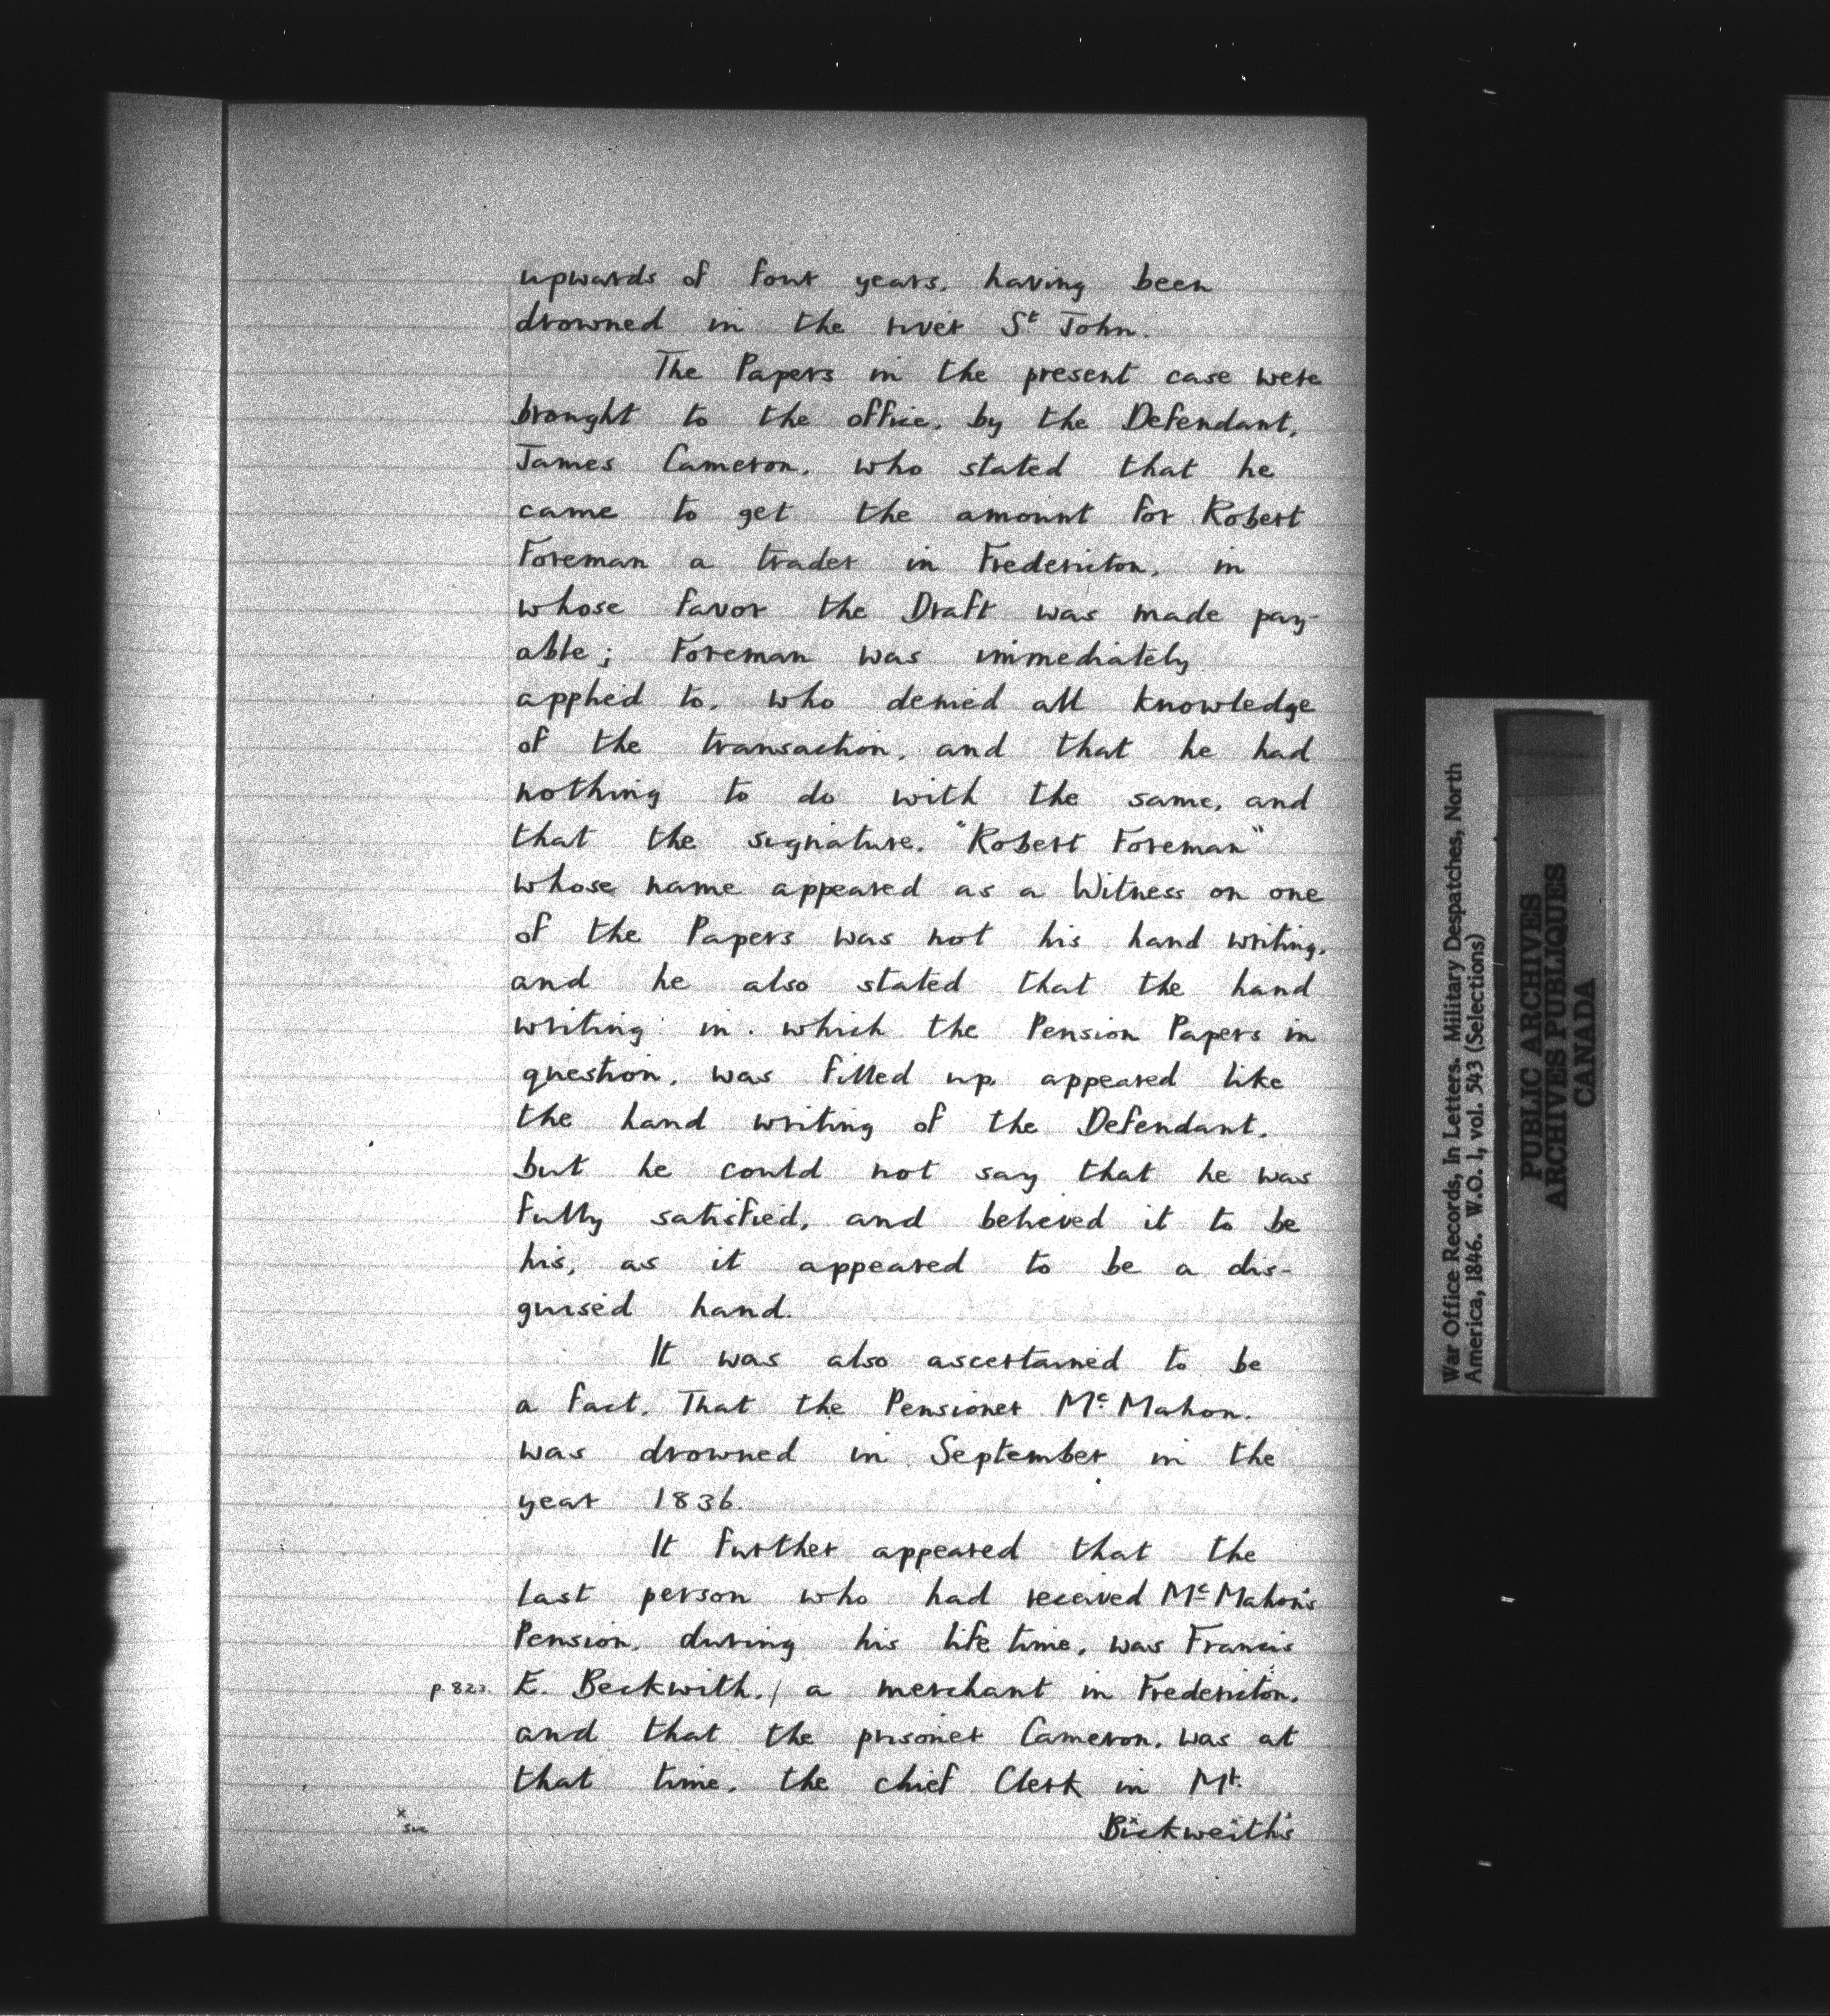 upwards of four years, having been
drowned in the river St John.
The Papers in the present case were
brought to the office, by the Defendant,
James Cameron, who stated that he
came to get the amount for Robert
Foreman a trader in Fredericton, in
whose favor the Draft was made pay-
able; Foreman was immediately
applied to, who denied all knowledge
of the transaction, and that he had
nothing to do with the same, and
that the signature, "Robert Foreman"
whose name appeared as a Witness on one
of the Papers was not his hand writing,
and he also stated that the hand
writing in which the Pension Papers in
question, was filled up appeared like
the hand writing of the Defendant,
but he could not say that he was
fully satisfied, and believed it to be
his, as it appeared to be a dis-
guised hand.
It was also ascertained to be
a fact, That the Pensioner Mc Mahon,
was drowned in September in the
year 1836.
It further appeared that the
last person who had received Mc Mahon's
Pension, during his life time, was Francis
E. Beckwith, / a merchant in Fredericton,
and that the prisoner Cameron, was at
that time, the chief Clerk in Mr.
Bickweith's
x
sic
War Office Records, In Letters. Military Despatches, North
America, 1846. W.O. 1, vol. 543 (Selections)
PUBLIC ARCHIVES
ARCHIVES PUBLIQUES
CANADA